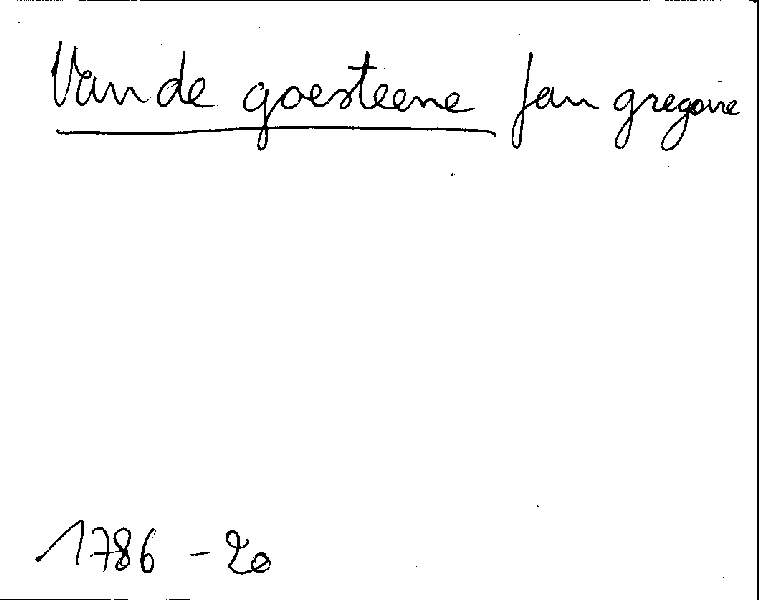 Van de goesteene Jan gregoire
1786 - 20